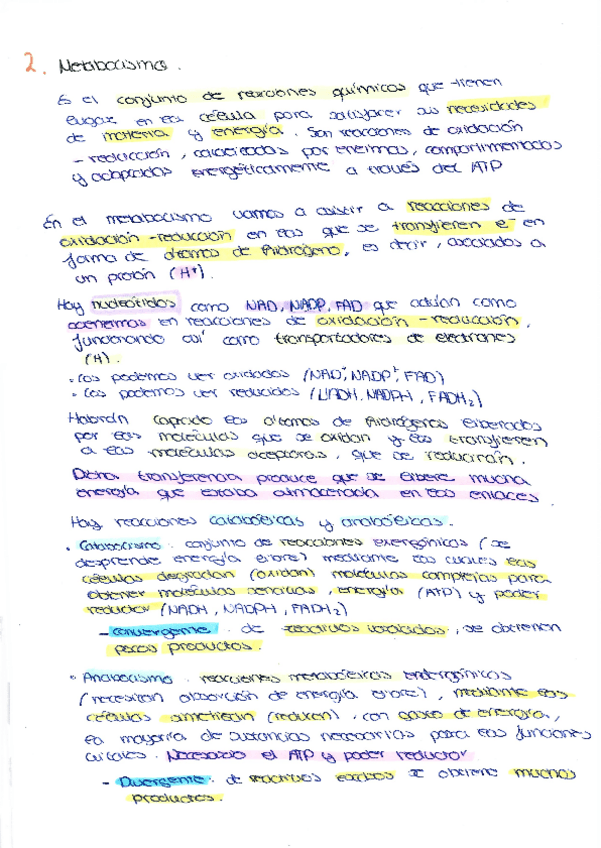 2. Metabolismo.
Es el conjunto de reacciones químicas que tienen
lugar en la célula para satisfacer sus necesidades
de materia y energía. Son reacciones de oxidación
-reducción, catalizadas por enzimas, compartimentados
y acoplados energéticamente a través del ATP
En el metabolismo vamos a asistir a reacciones de
oxidación-reducción en las que se transfieren e- en
forma de átomos de hidrógeno, es decir, asociados a
un protón (H+).
Hay nucleótidos como NAD, NADP, FAD que actúan como
coenzimas en reacciones de oxidación-reducción,
funcionando así como transportadores de electrones
(H).
• Los podemos ver oxidados (NAD+, NADP+, FAD)
• Los podemos ver reducidos (NADH, NADPH, FADH2)
Habrán captado los átomos de hidrógenos liberados
por las moléculas que se oxidan y las transfieren
a las moléculas aceptoras, que se reducirán.
Dicha transferencia produce que se libere mucha
energía que estaba almacenada en los enlaces
Hay reacciones catabólicas y anabólicas.
• Catabolismo: conjunto de reacciones exergónicas (se
desprende energía libre) mediante las cuales las
células degradan (oxidan) moléculas complejas para
obtener moléculas sencillas, energía (ATP) y poder
reductor (NADH, NADPH, FADH2)
- Convergente: de reactivos variados, se obtienen
pocos productos.
• Anabolismo: reacciones metabólicas endergónicas
(necesitan absorción de energía libre), mediante las
células sintetizan (reducen), con gasto de energía,
la mayoría de sustancias necesarias para las funciones
vitales. Necesario el ATP y poder reductor
- Divergente: de reactivos escasos se obtiene muchos
productos.